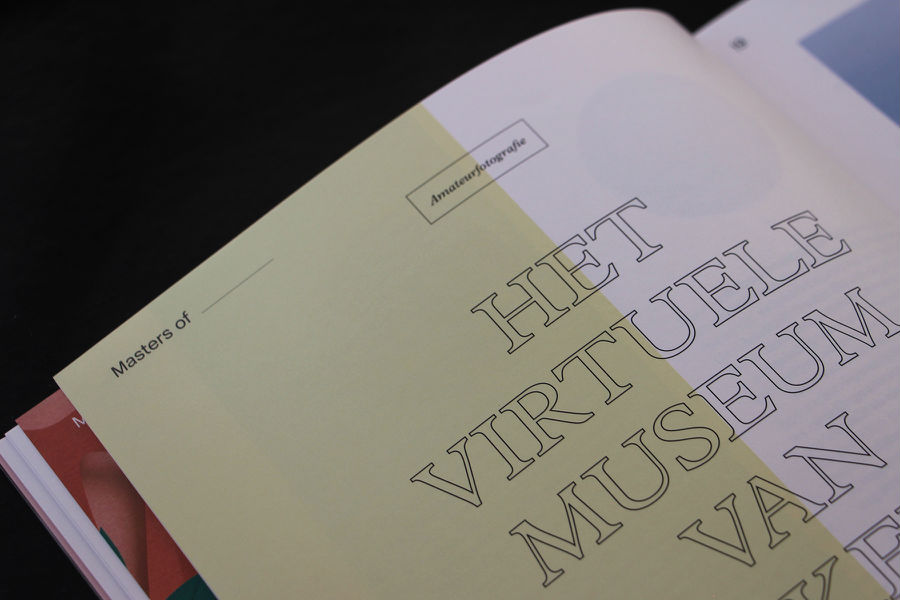 Amateurfotografie
Masters of
HET
VIRTUELE
MUSEUM
VAN